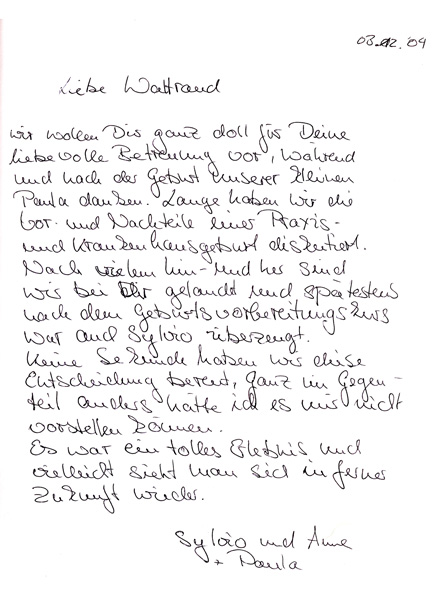 03.12.'09
Liebe Waltraud
wir wollen Dir ganz doll für Deine
liebevolle Betreuung vor, während
und nach der Geburt unserer kleinen
Paula danken. Lange haben wir die
Vor- und Nachteile einer Praxis-
und Krankenhausgeburt diskutiert.
Nach vielem hin- und her sind
wir bei Dir gelandet und spätestens
nach dem Geburtsvorbereitungskurs
war auch Sylvio überzeugt.
Keine Sekunde haben wir diese
Entscheidung bereut, ganz im Gegen-
teil anders hätte ich es mir nicht
vorstellen können.
Es war ein tolles Erlebnis und
vielleicht sieht man sich in ferner
Zukunft wieder.
Sylvio und Anne
+ Paula